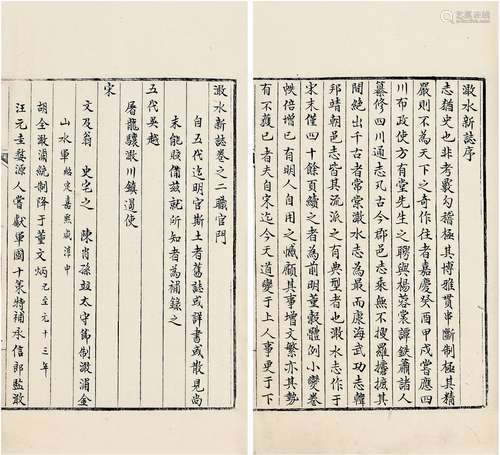 澉水新誌序
志猶史也非考覈勾稽極其博雅貫串斷制極其精
嚴則不為天下之奇作往者嘉慶癸酉甲戌嘗應四
川布政使方有堂先生之聘與楊蓉裳譚鉄蕭諸人
纂修四川通志凡古今郡邑志乘無不搜羅擔摭其
間絶出千古者常棠澉水志為最而康海武功志韓
邦靖朝邑志皆其流派之有典型者也澉水志作于
宋末僅四十餘頁續之者為前明董穀體例小變卷
帙倍增已有明人自用之憾顧其事增文繁亦其勢
有不獲已者夫自宋迄今天道變于上人事更于下
澉水新誌卷之二職官門
自五代迄明官斯土者舊誌或詳書或散見尚
未能賅備茲就所知者為補錄之
五代吳越
屠龍驤澉川鎮遏使
宋
文及翁 史宅之 陳肖孫 太守節制澉浦金
山水軍 紹定嘉熙咸淳中
胡全澉浦統制降于董文炳 已至元十三年
汪元圭婺源人嘗獻軍國十策特補承信郎監澉